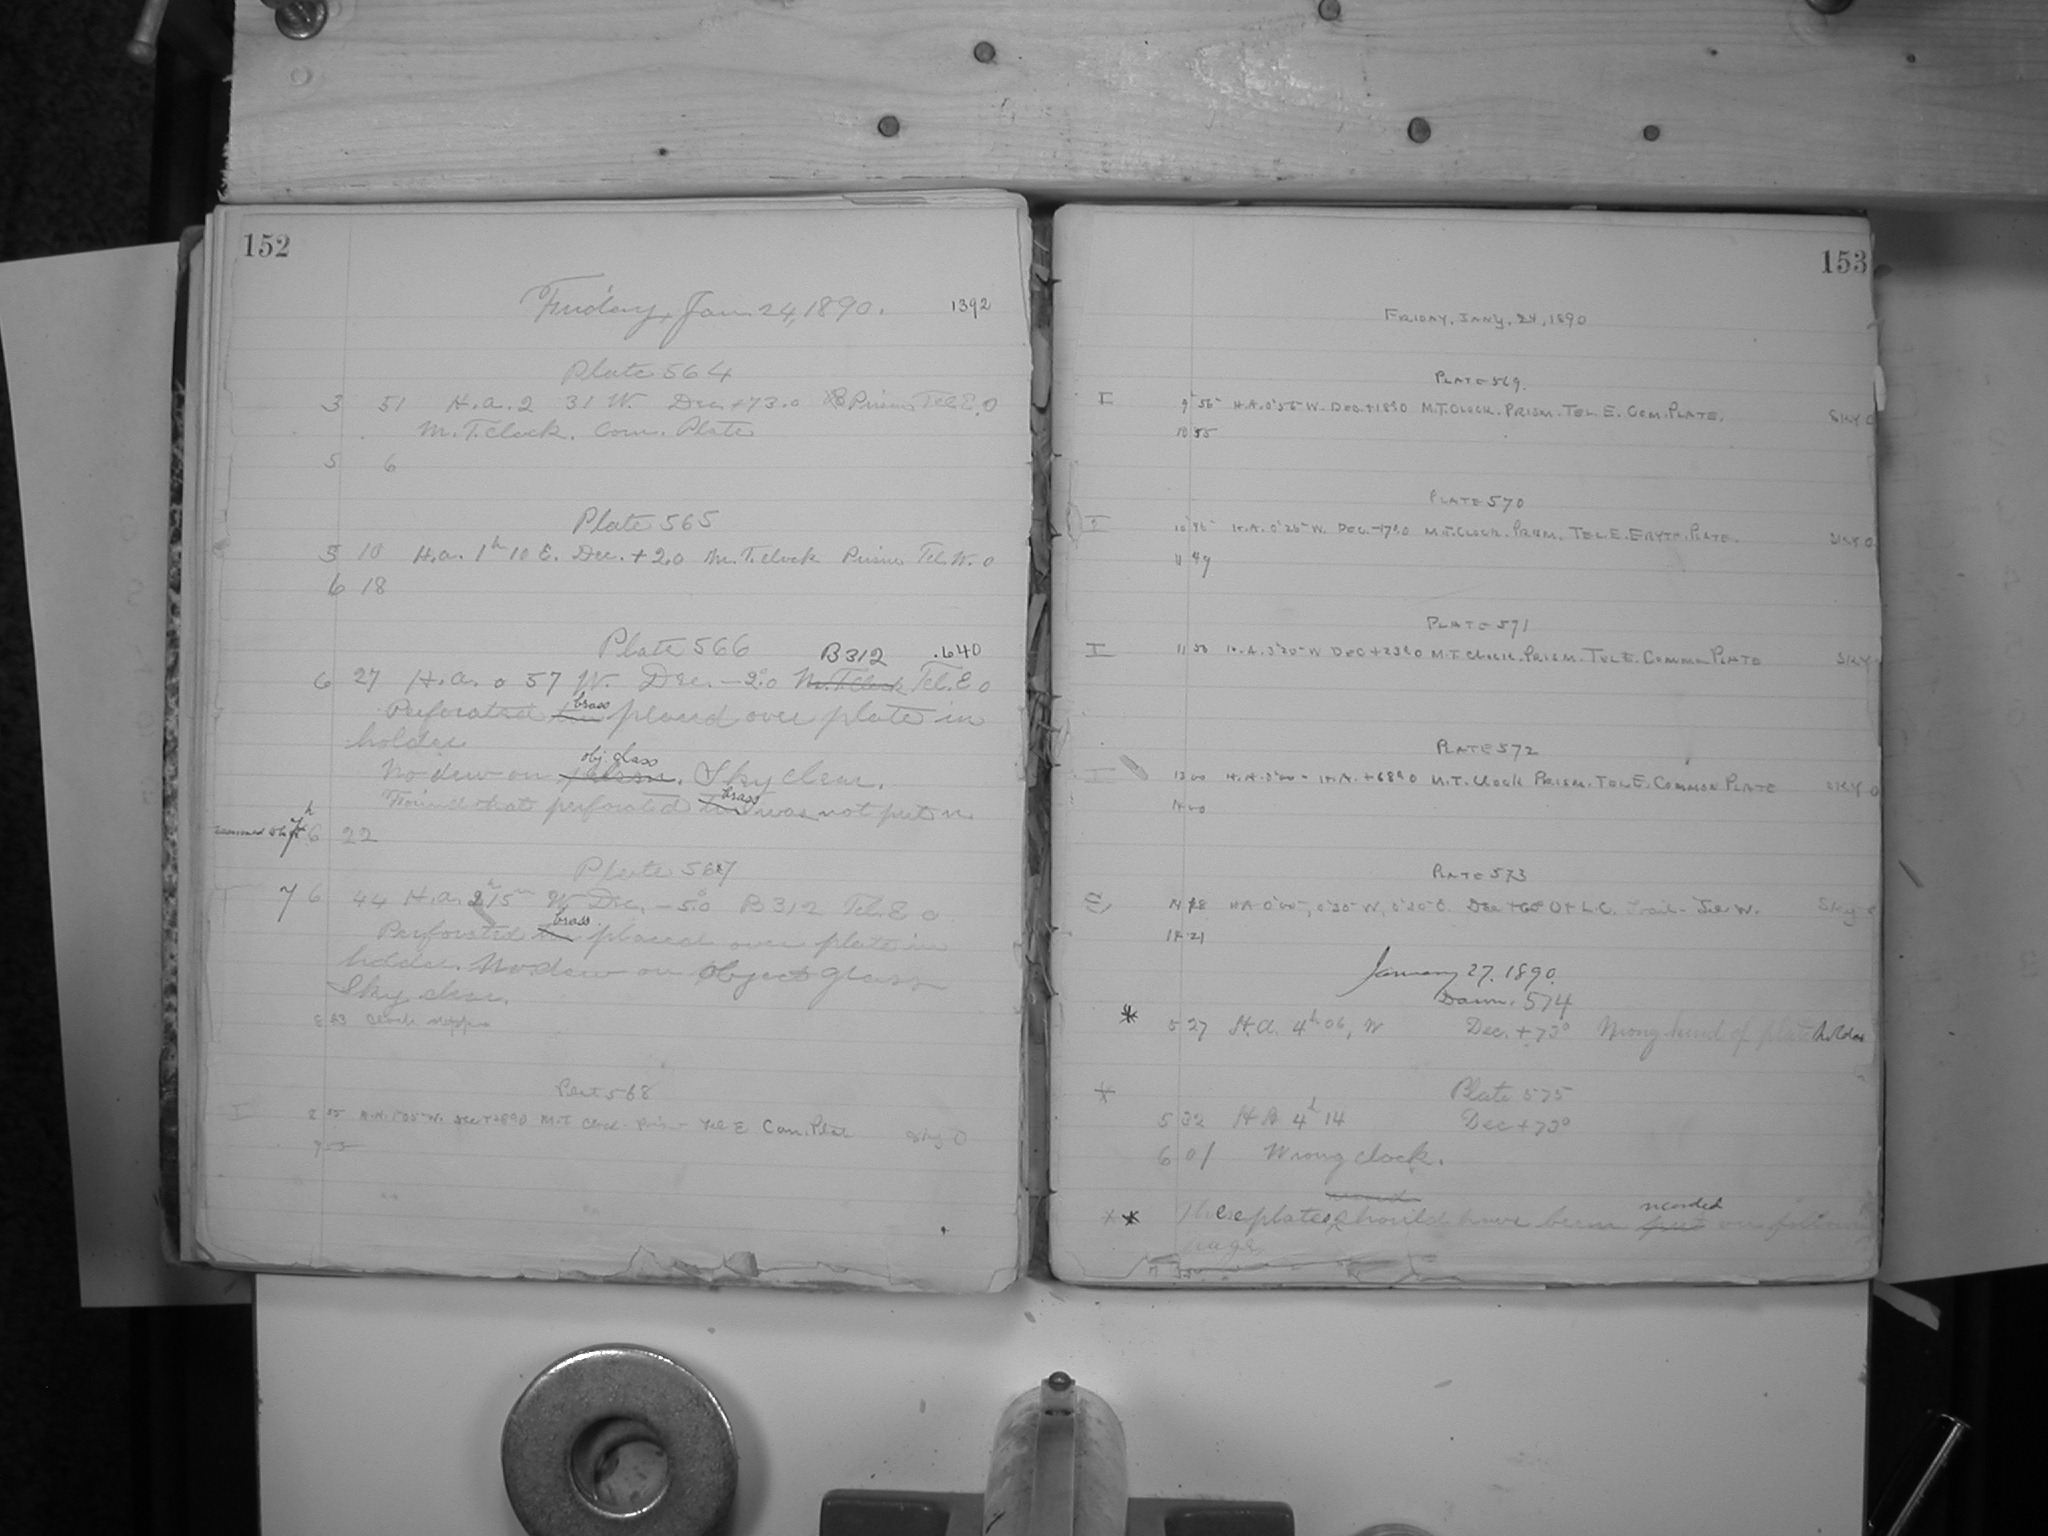 152
Friday, Jan. 24, 1890. 1392
Plate 564
3 51 H.a. 2 31 W. Dec. +73.0 Prism Tel. E. 0
M. T. clock. Com. Plate
5 6
Plate 565
5 10 H.a. 1h 10 E. Dec. + 2.0 M. T. clock Prism Tel. W. 0
6 18
Plate 566 B312 .640
6 27 H.a. 0 57 W. Dec. -2°.0 M. T. Clock Tel. E 0
Perforated brass placed over plate in
holder
obj. glass
No dew on prism. Sky clear.
Found that perforated brass was not put in
6 22
Plate 567
7 6 44 H.a. 2h 15m W. Dec. -5°.0 B312 Tel. E 0
Perforated brass placed over plate in
holder. No dew on object glass
Sky clear.
Clock stopped
Plate 568
I 8 55 M.T. Clock Prism Tel E Com. Plate Sky 0
9 55
153
FRIDAY, JANY. 24, 1890
PLATE 569.
I 9 56 H.A. 0h 56 W. DEC. +18°0 M.T. CLOCK. PRISM. TEL. E. COM. PLATE. SKY 0
10 55
PLATE 570
I H.A. 0h 26 W. DEC. -17°.0 M.T. CLOCK. PRISM. TEL E. ERYTH. PLATE. SKY 0
11 49
PLATE 571
I 11 50 H.A. 3h 20 W DEC +23°0 M.T. CLOCK. PRISM. TEL E. COMMON PLATE SKY
PLATE 572
I 13 00 H.A. +68°0 M.T. CLOCK PRISM. TEL E. COMMON PLATE SKY 0
14 00
PLATE 573
E 14 18 HA 0h 00m, 0h 20m W, 0h 20m E. Dec +60° U + L.C. Trail - Tel W. Sky 0
14 21
January 27. 1890.
Dawn. 574
* 5 27 H.a. 4h 06, W Dec. +73° Wrong kind of plate holder
* Plate 575
5 32 H A 4h 14 Dec +73°
6 01 Wrong clock.
* * These plates should have been recorded on following
page